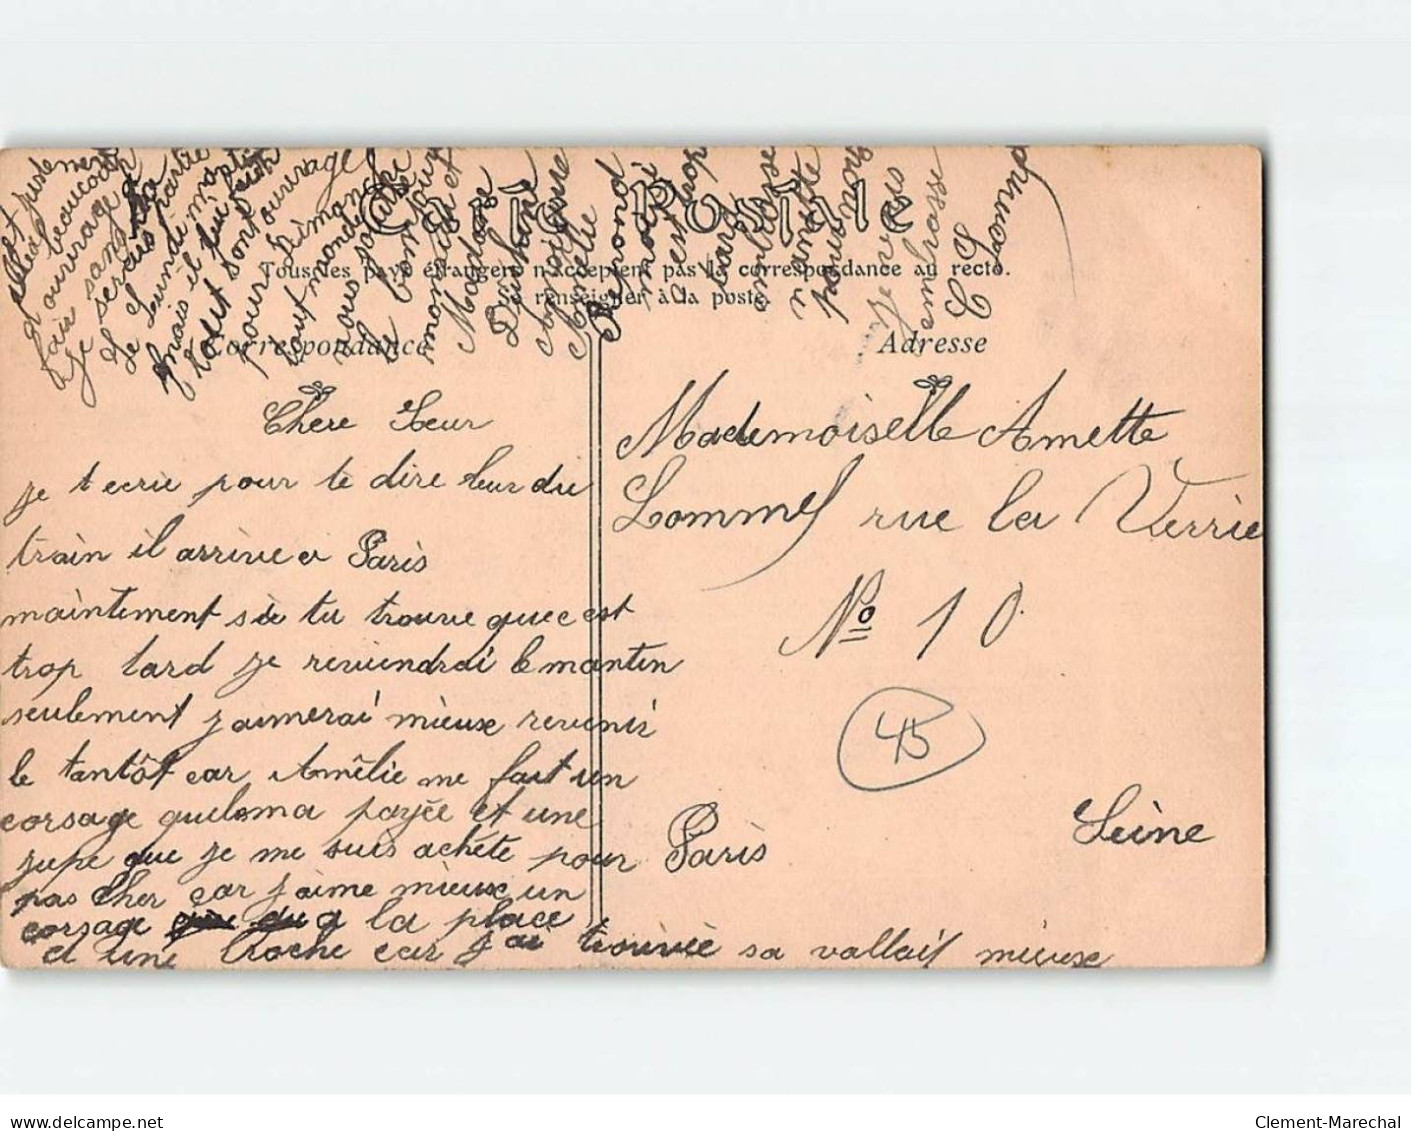 Carte Postale
Tous les pays étrangers n'acceptent pas la correspondance au recto.
Se renseigner à la poste.
Correspondance
Adresse
Chere Seur
je t ecrie pour te dire leur du
train il arrive a Paris
maintement sie tu trouve que c est
trop tard je reviendrai le mantin
seulement j aimerai mieuse revenir
le tantôt car Amêlie me fait un
corsage quelema payée et une
jupe que je me suis achéte pour
pas Cher car j aime mieux un
corsage a la place
et une broche car j ai trouvée sa vallait mieuse
Mademoiselle Amette
Lommel rue la Verrie
No 10
45
Paris
Seine
et justement
beaucoup
d ouvrage
fair sang
je serais partie
le Lundi
mais il
tout sont ouvrage
pour Dimanche
tout monde
nous
le bonjour
Madame
Duhane
Amêlie
Repond
moi
trop
tard
embrasse
anette
pour moi
je vous
embrasse
C. Lommel
Clement-Marechal
www.delcampe.net